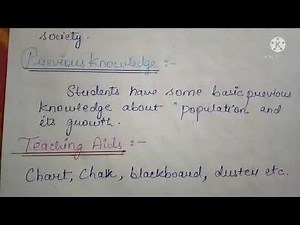 society.
Previous Knowledge :-
Students have some basic previous
knowledge about "population and
its growth.
Teaching Aids :-
Chart, Chalk, blackboard, duster etc.